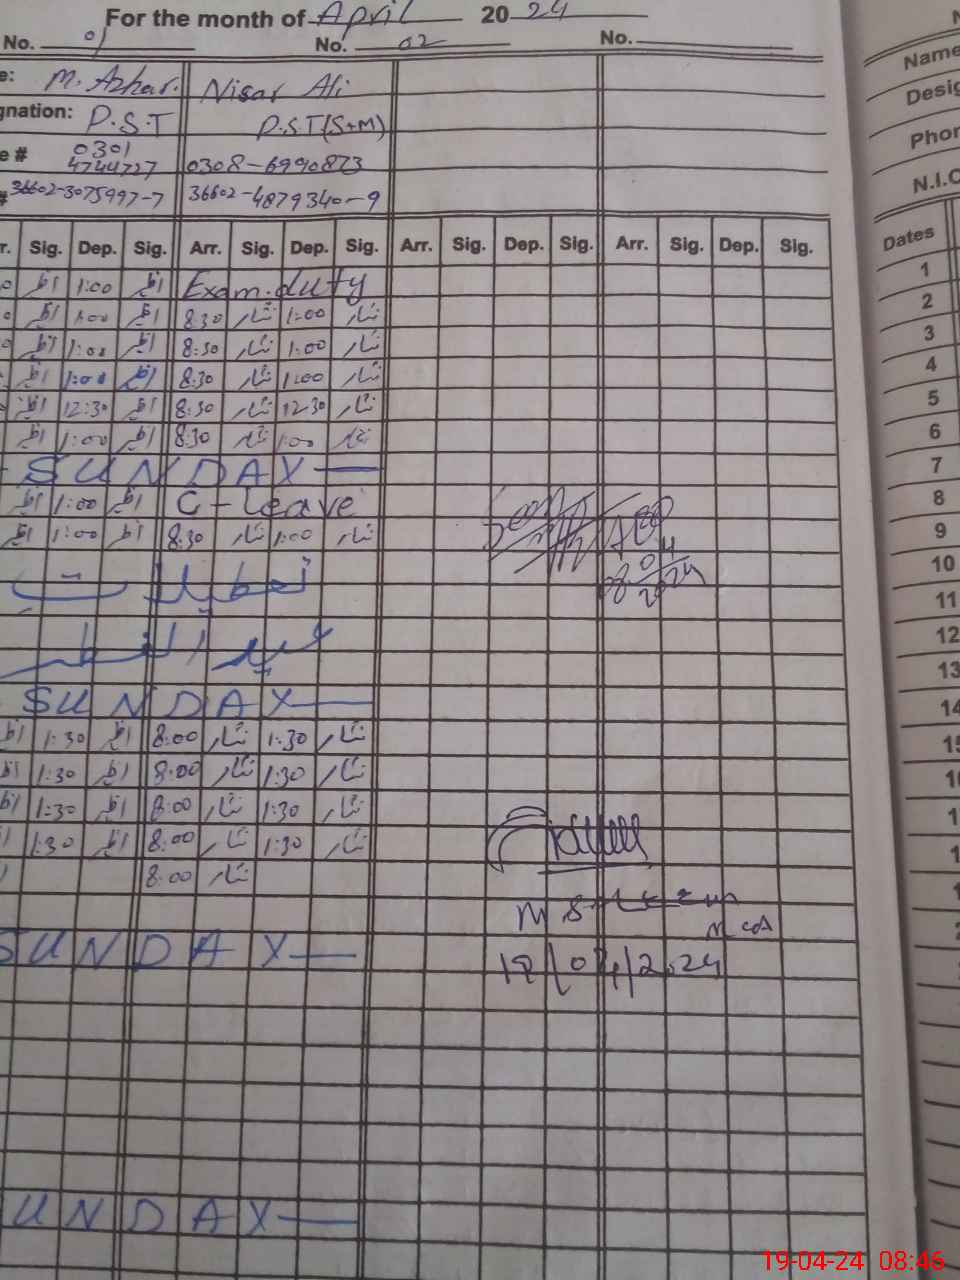 For the month of April 20 24
No. 01 No. 02 No.
e: M. Azhar. Nisar Ali
gnation: P.S.T P.S.T(S+M)
e # 0301
4744727 0308-6990873
# 36602-3075997-7 36602-4879340-9
r. Sig. Dep. Sig. Arr. Sig. Dep. Sig. Arr. Sig. Dep. Sig. Arr. Sig. Dep. Sig.
1:00 Exam.duty
1:00 8:30 نثار 1:00 نثار
1:00 8:30 نثار 1:00 نثار
1:00 8:30 نثار 1:00 نثار
12:30 8:30 نثار 12:30 نثار
1:00 8:30 نثار 1:00 نثار
SUNDAY
1:00 C-Leave
1:00 8:30 نثار 1:00 نثار
تعطیلات
عید الفطر
SUNDAY
1:30 8:00 نثار 1:30 نثار
1:30 8:00 نثار 1:30 نثار
1:30 8:00 نثار 1:30 نثار
1:30 8:00 نثار 1:30 نثار
8:00 نثار
SUNDAY
UNDAY
08 04 2024
18/04/2024
Name
Desig
Phon
N.I.C
Dates
1
2
3
4
5
6
7
8
9
10
11
12
13
14
19-04-24 08:46